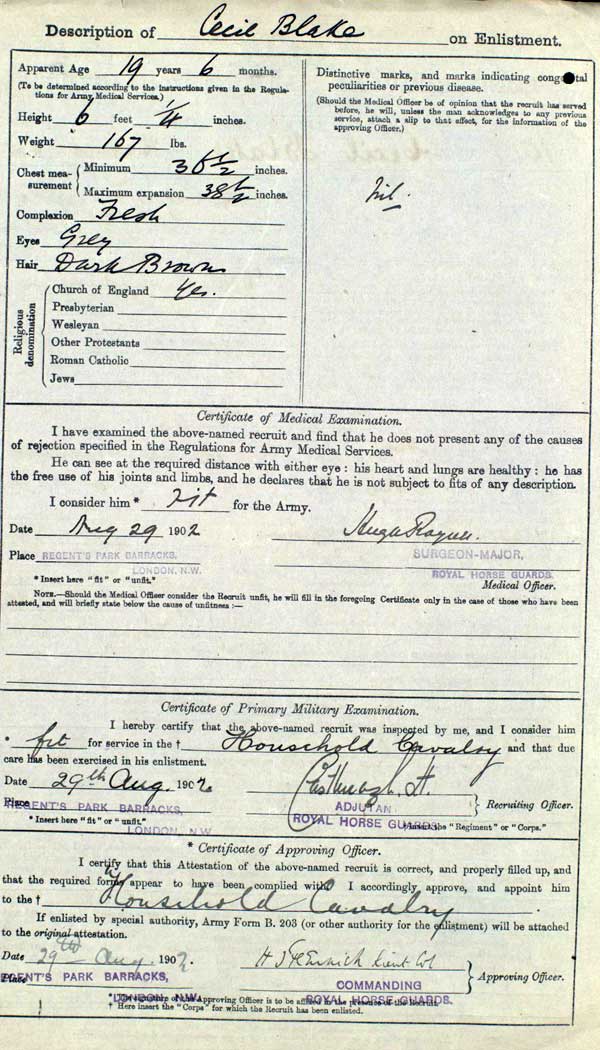 Description of Cecil Blake on Enlistment.
Apparent Age 19 years 6 months.
(To be determined according to the instructions given in the Regula-
tions for Army Medical Services.)
Height 6 feet 1/4 inches.
Weight 167 lbs.
Chest mea-
surement
Minimum 36 1/2 inches.
Maximum expansion 38 1/2 inches.
Complexion Fresh
Eyes Grey
Hair Dark Brown
Religious
denomination
Church of England Yes.
Presbyterian
Wesleyan
Other Protestants
Roman Catholic
Jews
Distinctive marks, and marks indicating congenital
peculiarities or previous disease.
(Should the Medical Officer be of opinion that the recruit has served
before, he will, unless the man acknowledges to any previous
service, attach a slip to that effect, for the information of the
approving Officer.)
Nil.
Certificate of Medical Examination.
I have examined the above-named recruit and find that he does not present any of the causes
of rejection specified in the Regulations for Army Medical Services.
He can see at the required distance with either eye : his heart and lungs are healthy : he has
the free use of his joints and limbs, and he declares that he is not subject to fits of any description.
I consider him * Fit for the Army.
Date Aug 29 1902
Place REGENT'S PARK BARRACKS,
LONDON, N.W.
SURGEON-MAJOR,
ROYAL HORSE GUARDS.
Medical Officer.
* Insert here "fit" or "unfit."
NOTE.—Should the Medical Officer consider the Recruit unfit, he will fill in the foregoing Certificate only in the case of those who have been
attested, and will briefly state below the cause of unfitness :—
Certificate of Primary Military Examination.
I hereby certify that the above-named recruit was inspected by me, and I consider him
* fit for service in the † Household Cavalry and that due
care has been exercised in his enlistment.
Date 29th Aug. 1902
Place REGENT'S PARK BARRACKS,
LONDON, N.W.
* Insert here "fit" or "unfit."
ADJUTANT
ROYAL HORSE GUARDS.
Recruiting Officer.
† Insert the "Regiment" or "Corps."
* Certificate of Approving Officer.
I certify that this Attestation of the above-named recruit is correct, and properly filled up, and
that the required forms appear to have been complied with. I accordingly approve, and appoint him
to the † Household Cavalry
If enlisted by special authority, Army Form B. 203 (or other authority for the enlistment) will be attached
to the original attestation.
Date 29th Aug. 1902.
Place REGENT'S PARK BARRACKS,
LONDON, N.W.
Lieut Col
COMMANDING
ROYAL HORSE GUARDS.
Approving Officer.
* The signature of the Approving Officer is to be affixed in the presence of the Recruit.
† Here insert the "Corps" for which the Recruit has been enlisted.